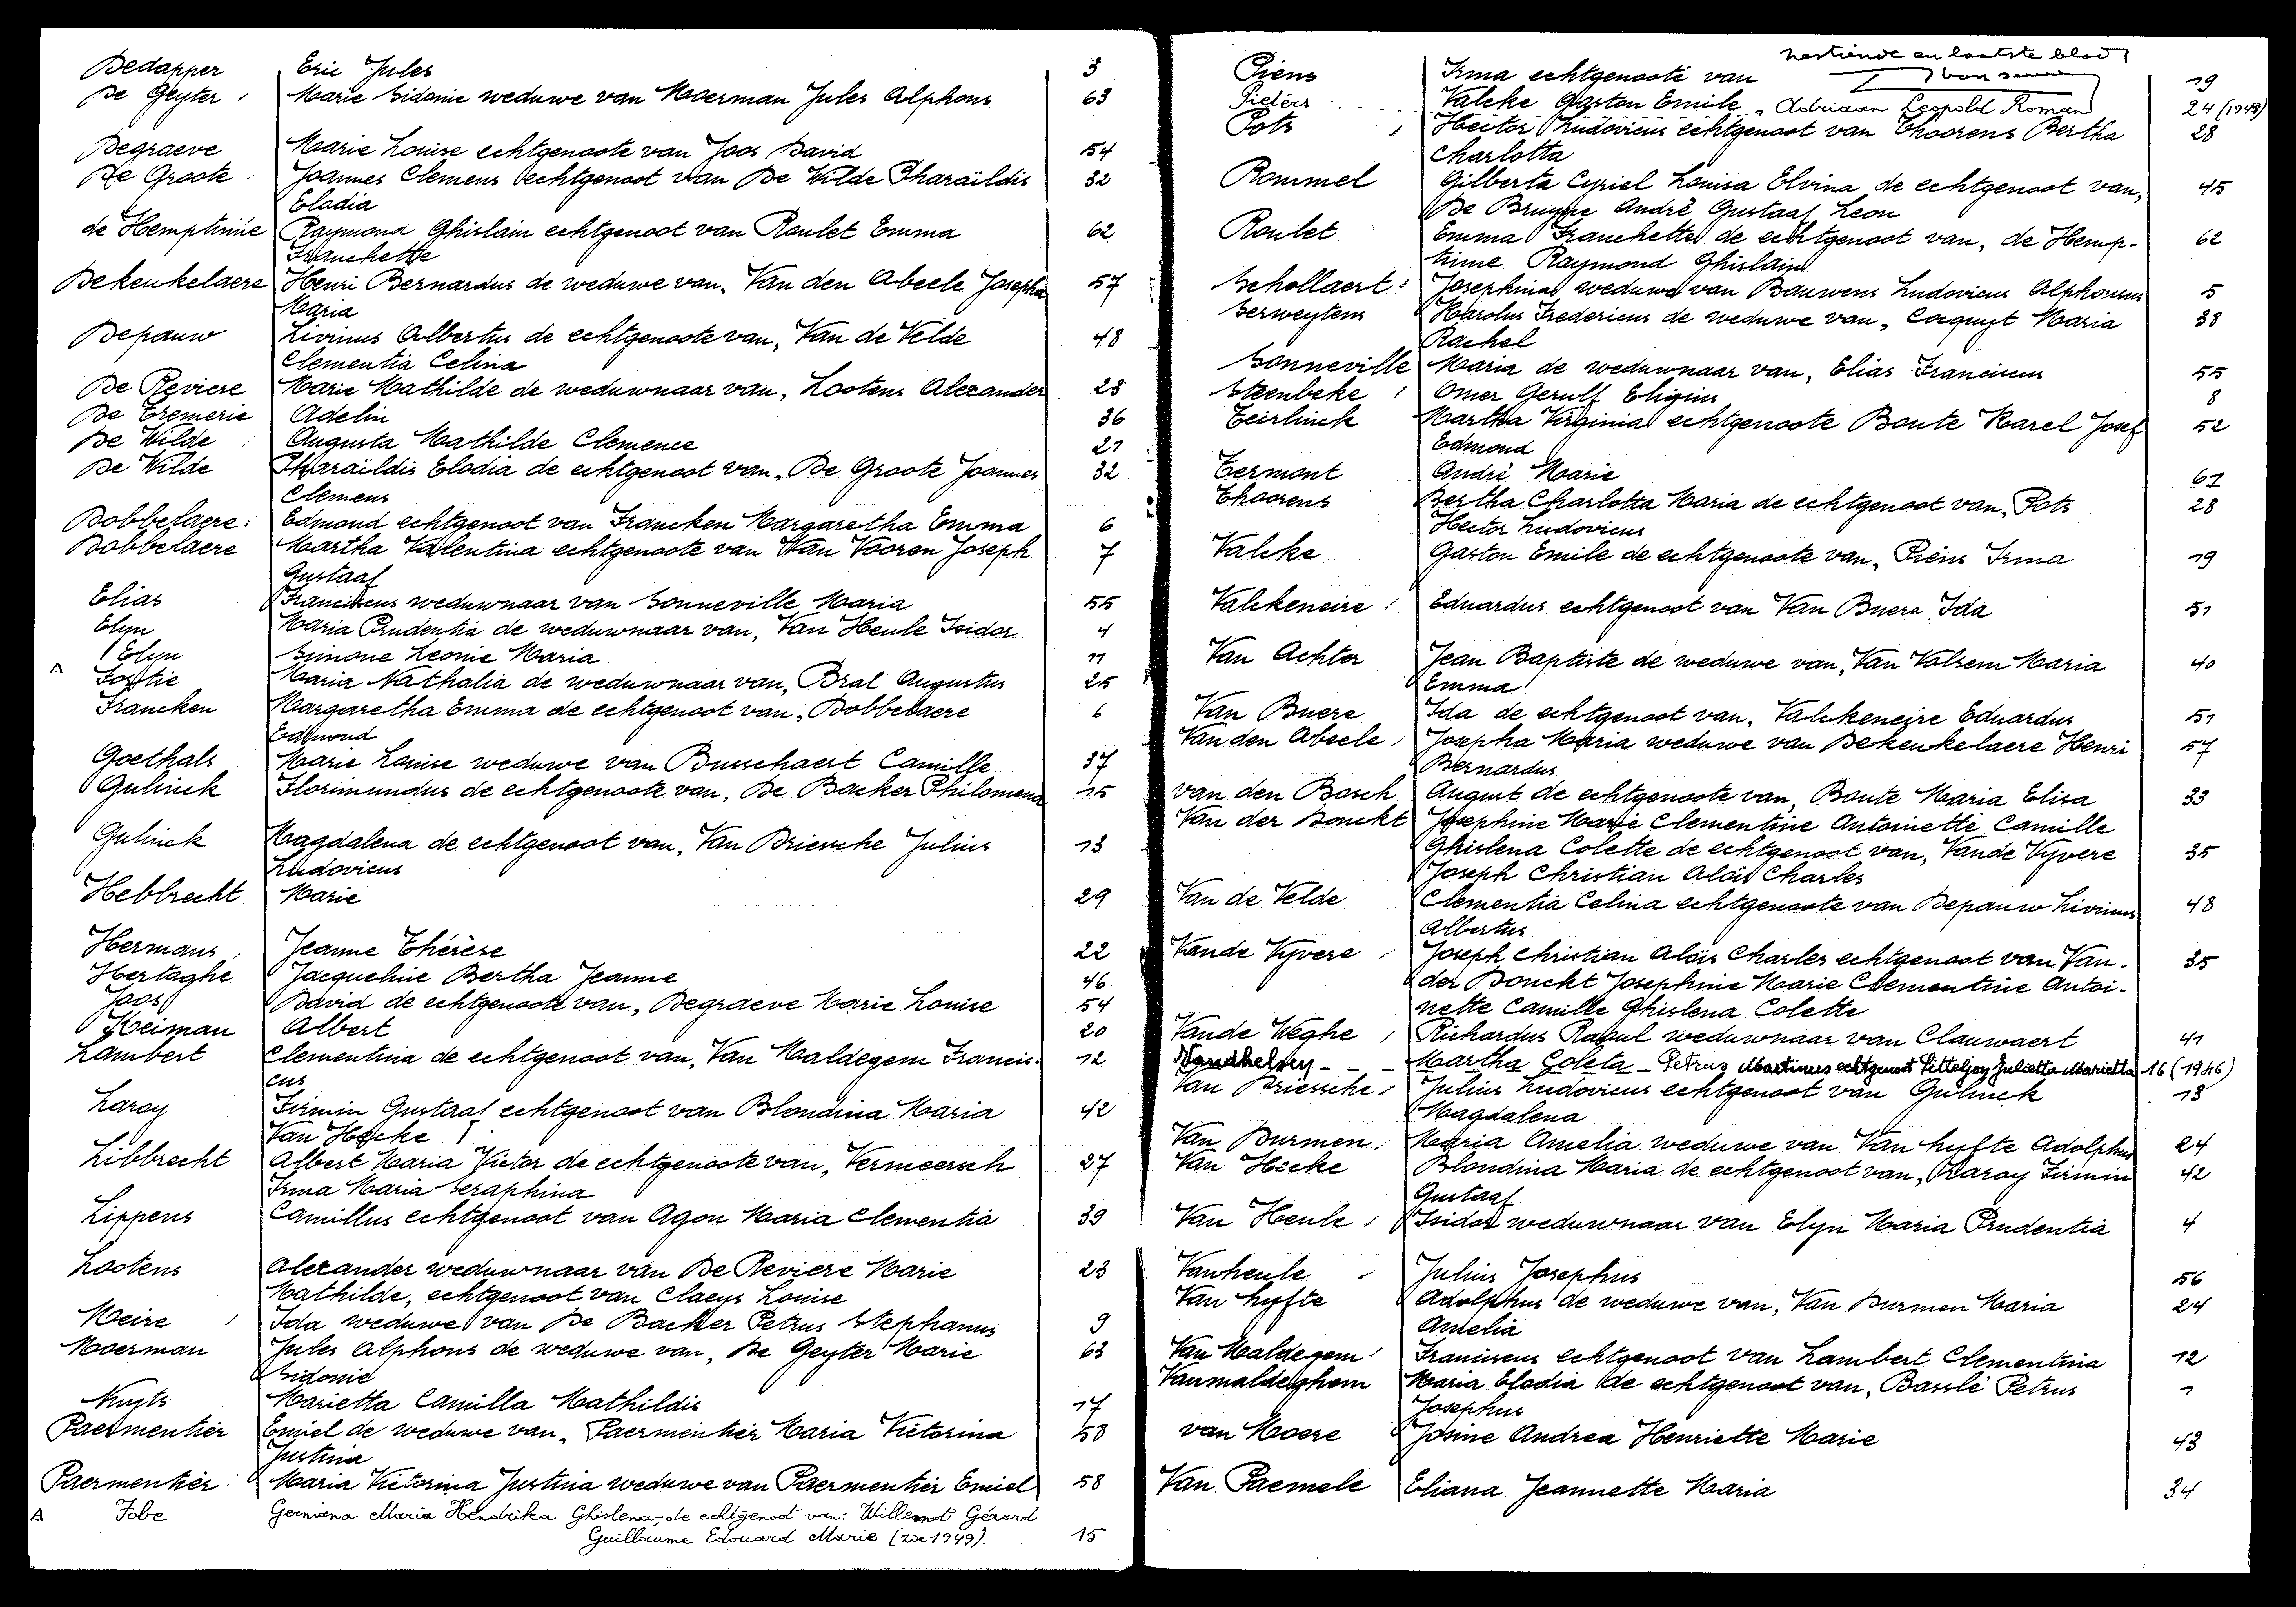 Dedapper Eric Jules 3
De Geyter Marie Sidonie weduwe van Moerman Jules Alphons 63
Degraeve Marie Louise echtgenoote van Joos David 54
De Groote Joannes Clemens echtgenoot van De Wilde Pharaïldis 32
Elodia
de Hemptinne Raymond Ghislain echtgenoot van Roulet Emma 62
Franchette
Dekeukelaere Henri Bernardus de weduwe van, Van den Abeele Josepha 57
Maria
Depauw Livinus Albertus de echtgenoote van, Van de Velde 48
Clementia Celina
De Reviere Marie Mathilde de weduwnaar van, Lootens Alexander 23
De Tremerie Adelin 36
De Wilde Augusta Mathilde Clemence 21
De Wilde Pharaïldis Elodia de echtgenoot van, De Groote Joannes 32
Clemens
Dobbelaere Edmond echtgenoot van Francken Margaretha Emma 6
Dobbelaere Martha Valentina echtgenoote van Van Vooren Joseph 7
Gustaaf
Elias Franciscus weduwnaar van Sonneville Maria 55
Elyn Maria Prudentia de weduwnaar van, Van Heule Isidor 4
Elyn Simone Leonie Maria 11
Fostie Maria Nathalia de weduwnaar van, Bral Augustus 25
Francken Margaretha Emma de echtgenoot van, Dobbelaere 6
Edmond
Goethals Marie Louise weduwe van Busschaert Camille 37
Gulinck Florimundus de echtgenoote van, De Backer Philomena 15
Gulinck Magdalena de echtgenoot van, Van Driessche Julius 13
Ludovicus
Hebbrecht Marie 29
Hermans Jeanne Thérèse 22
Hertaghe Jacqueline Bertha Jeanne 46
Joos David de echtgenoote van, Degraeve Marie Louise 54
Keiman Albert 20
Lambert Clementina de echtgenoot van, Van Maldegem Francis- 12
cus
Laroy Firmin Gustaaf echtgenoot van Blondina Maria 42
Van Hecke
Libbrecht Albert Maria Victor de echtgenoote van, Vermeersch 27
Irma Maria Seraphina
Lippens Camillus echtgenoot van Agon Maria Clementia 39
Lootens Alexander weduwnaar van De Reviere Marie 23
Mathilde, echtgenoot van Claeys Louise
Meire Ida weduwe van De Backer Petrus Stephanus 9
Moerman Jules Alphons de weduwe van, De Geyter Marie 63
Sidonie
Nuyts Marietta Camilla Mathildis 17
Paermentier Emiel de weduwe van, Paermentier Maria Victorina 58
Justina
Paermentier Maria Victorina Justina weduwe van Paermentier Emiel 58
A Fobe Germana Maria Hendrika Ghislena, de echtgenoot van: Willemot Gérard
Guillaume Edouard Marie (zie 1949). 15
zestiende en laatste blad
Piens Irma echtgenoote van 19
Pieters Valcke Gaston Emile, Adriaan Leopold Roman 24 (1948)
Pots Hector Ludovicus echtgenoot van Thoorens Bertha 28
Charlotta
Rommel Gilberta Cyriel Louisa Elvina de echtgenoot van, 45
De Bruyne André Gustaaf Leon
Roulet Emma Franchette de echtgenoot van, de Hemp- 62
tinne Raymond Ghislain
Schollaert Josephina weduwe van Bauwens Ludovicus Alphonsus 5
Serweytens Karolus Fredericus de weduwe van, Cocquyt Maria 38
Rachel
Sonneville Maria de weduwnaar van, Elias Franciscus 55
Steenbeke Omer Gerulf Eligius 8
Teirlinck Martha Virginia echtgenoote Boute Karel Josef 52
Edmond
Termont André Marie 61
Thoorens Bertha Charlotta Maria de echtgenoot van, Pots 28
Hector Ludovicus
Valcke Gaston Emile de echtgenoote van, Piens Irma 19
Valckeneire Eduardus echtgenoot van Van Buere Ida 51
Van Achter Jean Baptiste de weduwe van, Van Valsem Maria 40
Emma
Van Buere Ida de echtgenoot van, Valckeneire Eduardus 51
Van den Abeele Josepha Maria weduwe van Dekeukelaere Henri 57
Bernardus
van den Bosch August de echtgenoote van, Boute Maria Elisa 33
Van der Donckt Josephine Marie Clementine Antoinette Camille
Ghislena Colette de echtgenoot van, Vande Vyvere 35
Joseph Christian Aloïs Charles
Van de Velde Clementia Celina echtgenoote van Depauw Livinus 48
Albertus
Vande Vyvere Joseph Christian Aloïs Charles echtgenoot van Van- 35
der Donckt Josephine Marie Clementine Antoi-
nette Camille Ghislena Colette
Vande Weghe Richardus Raoul weduwnaar van Clauwaert 41
Martha Coleta - Petrus Martinus echtgenoot Pitteljon Julietta Marietta 16 (1946)
Van Driessche Julius Ludovicus echtgenoot van Gulinck 13
Magdalena
Van Durmen Maria Amelia weduwe van Van Hyfte Adolphus 24
Van Hecke Blondina Maria de echtgenoot van, Laroy Firmin 42
Gustaaf
Van Heule Isidor weduwnaar van Elyn Maria Prudentia 4
Vanheule Julius Josephus 56
Van Hyfte Adolphus de weduwe van, Van Durmen Maria 24
Amelia
Van Maldegem Franciscus echtgenoot van Lambert Clementina 12
Vanmaldeghem Maria Elodia de echtgenoot van, Basslé Petrus 1
Josephus
van Moere Josine Andrea Henriette Marie 43
Van Paemele Eliana Jeannette Maria 34